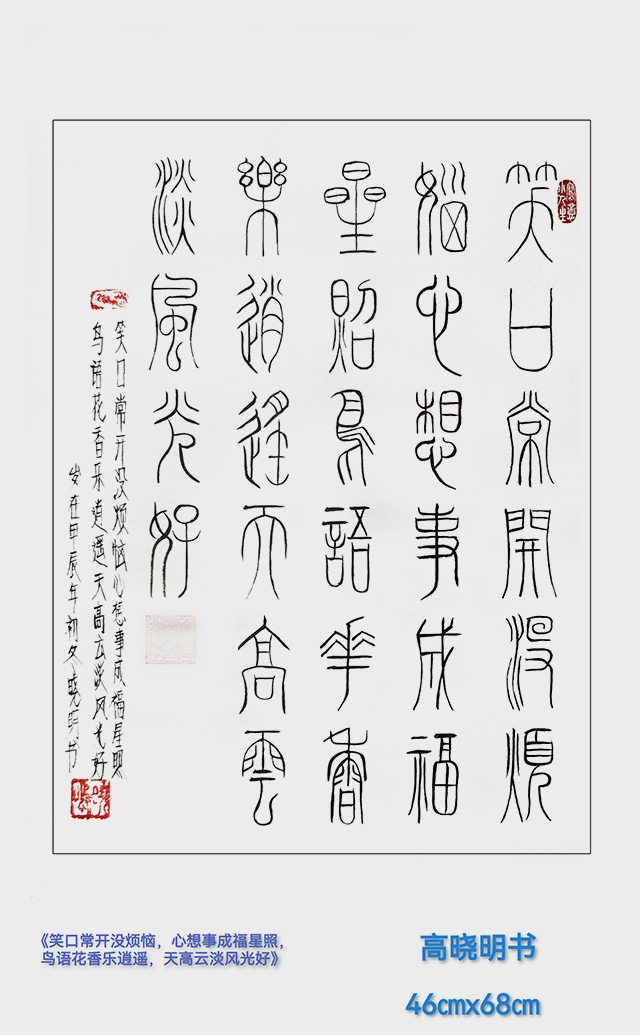 笑口常開没煩
惱心想事成福
星照鳥語花香
樂逍遥天高雲
淡風光好
笑口常开没烦恼心想事成福星照
鸟语花香乐逍遥天高云淡风光好
岁在甲辰年初冬晓明书
《笑口常开没烦恼，心想事成福星照，
鸟语花香乐逍遥，天高云淡风光好》
高晓明书
46cmx68cm